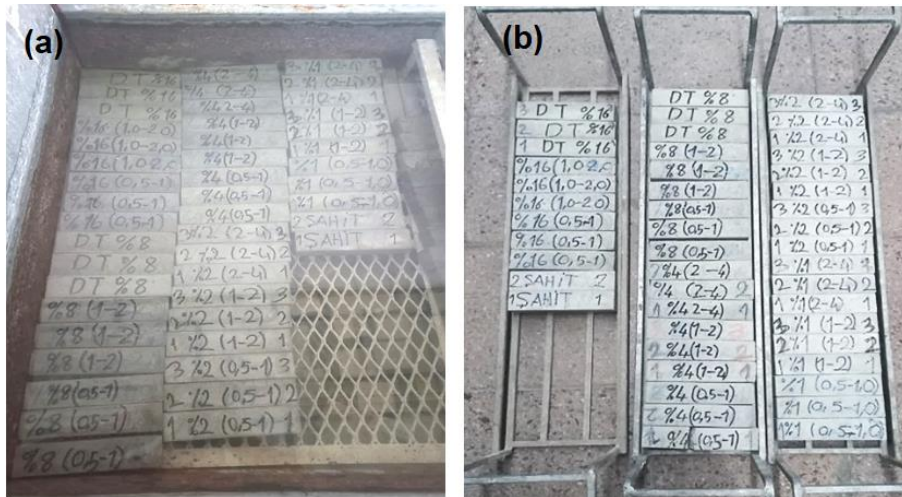 (a)
DT %16
DT %16
DT %16
%16 (1,0-2,0
%16 (1,0-2,0
%16 (1,0-2,0
%16 (0,5-1)
%16 (0,5-1)
%16 (0,5-1)
DT %8
DT %8
DT %8
%8 (1-2)
%8 (1-2)
%8 (1-2)
%8 (0,5-1)
%8 (0,5-1)
%8 (0,5-1)
%4 (2-4)
%4 (2-4)
%4 2-4)
%4 (1-2)
%4 (1-2)
%4 (1-2)
%4 (0,5-1)
%4 (0,5-1)
%4 (0,5-1)
3 %2 (2-4) 3
2 %2 (2-4) 2
1 %2 (2-4) 1
3 %2 (1-2) 3
2 %2 (1-2) 2
1 %2 (1-2) 1
3 %2 (0,5-1) 3
2 %2 (0,5-1) 2
1 %2 (0,5-1) 1
3 %1 (2-4)
2 %1 (2-4) 2
1 %1 (2-4) 1
%1 (1-2)
2 %1 (1-2) 2
1 %1 (1-2) 1
%1 (0,5-1,0)
%1 (0,5-1,0)
%1 (0,5-1,0)
2 SAHİT 2
1 SAHİT 1
(b)
3 DT %16
2 DT %16
1 DT %16
%16 (1,0-2,0
%16 (1,0-2,0)
%16 (1,0-2,0
%16 (0,5-1)
%16 (0,5-1)
%16 (0,5-1)
2 SAHİT 2
1 SAHİT 1
DT %8
DT %8
DT %8
%8 (1-2)
%8 (1-2)
%8 (1-2)
%8 (0,5-1)
%8 (0,5-1)
%8 (0,5-1)
%4 (2-4)
%4 (2-4) 2
1 %4 2-4) 1
%4 (1-2)
2 %4 (1-2)
1 %4 (1-2) 1
%4 (0,5-1)
2 %4 (0,5-1)
1 %4 (0,5-1) 1
3 %2 (2-4) 3
2 %2 (2-4) 2
1 %2 (2-4) 1
3 %2 (1-2) 3
2 %2 (1-2) 2
1 %2 (1-2) 1
3 %2 (0,5-1) 3
2 %2 (0,5-1) 2
1 %2 (0,5-1) 1
3 %1 (2-4)
2 %1 (2-4) 2
1 %1 (2-4) 1
3 %1 (1-2) 3
2 %1 (1-2) 2
1 %1 (1-2) 1
%1 (0,5-1,0)
%1 (0,5-1,0)
1 %1 (0,5-1,0)